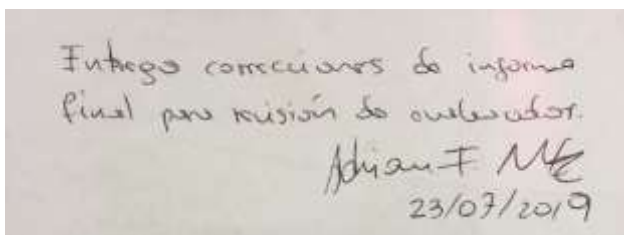 Entrego correcciones de informe
final para revisión de evaluador.
Adrian F
23/07/2019